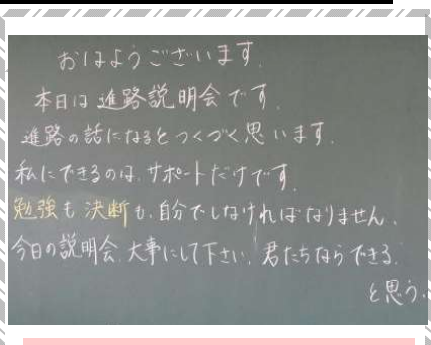 おはようございます。
本日は進路説明会です。
進路の話になるとつくづく思います。
私にできるのは、サポートだけです。
勉強も決断も、自分でしなければなりません。
今日の説明会、大事にして下さい。君たちならできる。
と思う。